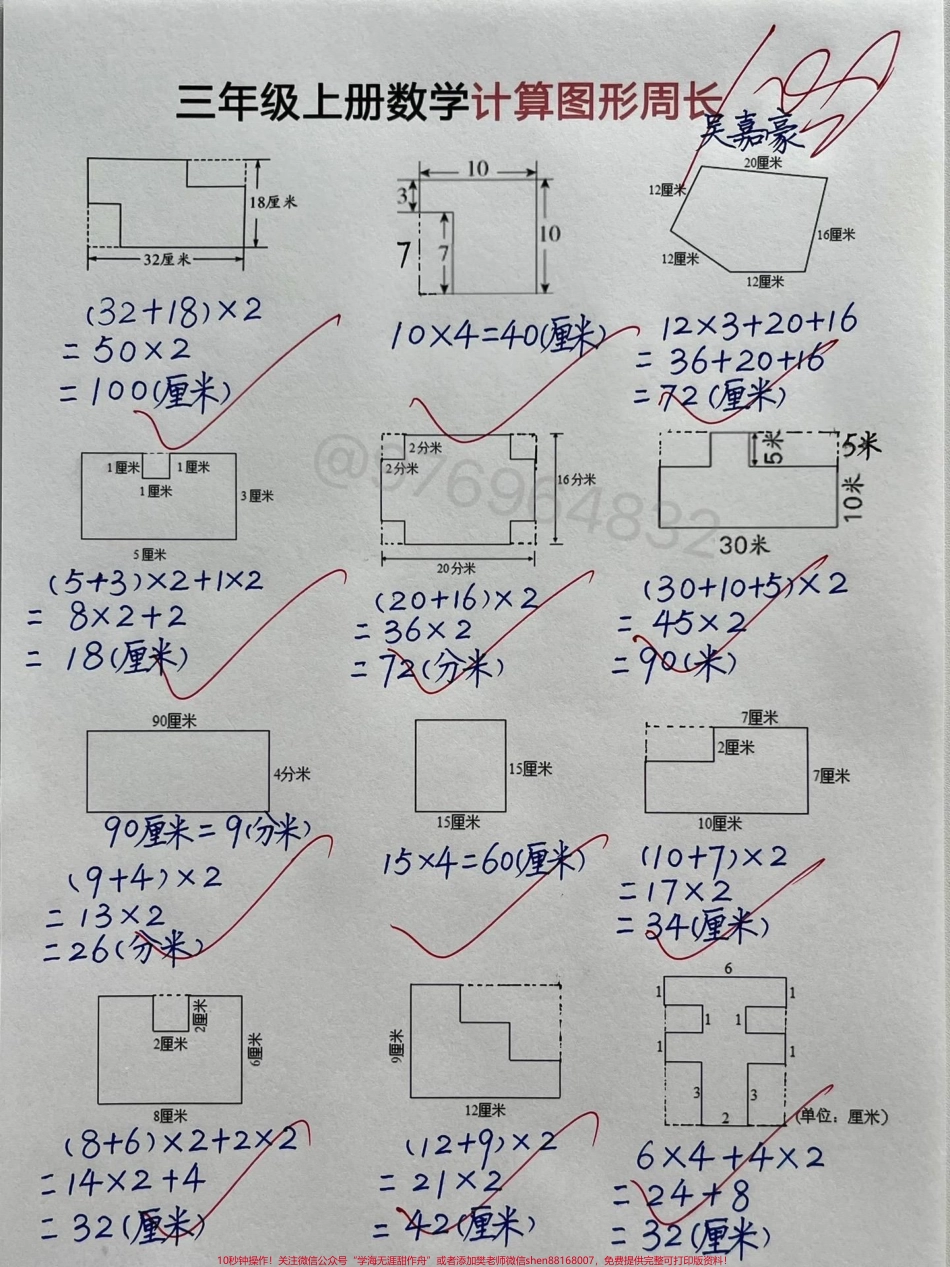 三年级上册数学计算图形周长
100
吴嘉豪
18厘米
32厘米
(32+18)×2
=50×2
=100(厘米)
10
3
7
7
10
10×4=40(厘米)
20厘米
12厘米
16厘米
12厘米
12厘米
12×3+20+16
=36+20+16
=72(厘米)
1厘米
1厘米
1厘米
3厘米
5厘米
(5+3)×2+1×2
=8×2+2
=18(厘米)
2分米
2分米
16分米
20分米
(20+16)×2
=36×2
=72(分米)
5米
5米
10米
30米
(30+10+5)×2
=45×2
=90(米)
@976964832
90厘米
4分米
90厘米=9(分米)
(9+4)×2
=13×2
=26(分米)
15厘米
15厘米
15×4=60(厘米)
7厘米
2厘米
7厘米
10厘米
(10+7)×2
=17×2
=34(厘米)
2厘米
2厘米
6厘米
8厘米
(8+6)×2+2×2
=14×2+4
=32(厘米)
9厘米
12厘米
(12+9)×2
=21×2
=42(厘米)
6
1
1
1
1
1
1
3
3
2
(单位：厘米)
6×4+4×2
=24+8
=32(厘米)
10秒钟操作！关注微信公众号“学海无涯甜作舟”或者添加樊老师微信shen88168007，免费提供完整可打印版资料！